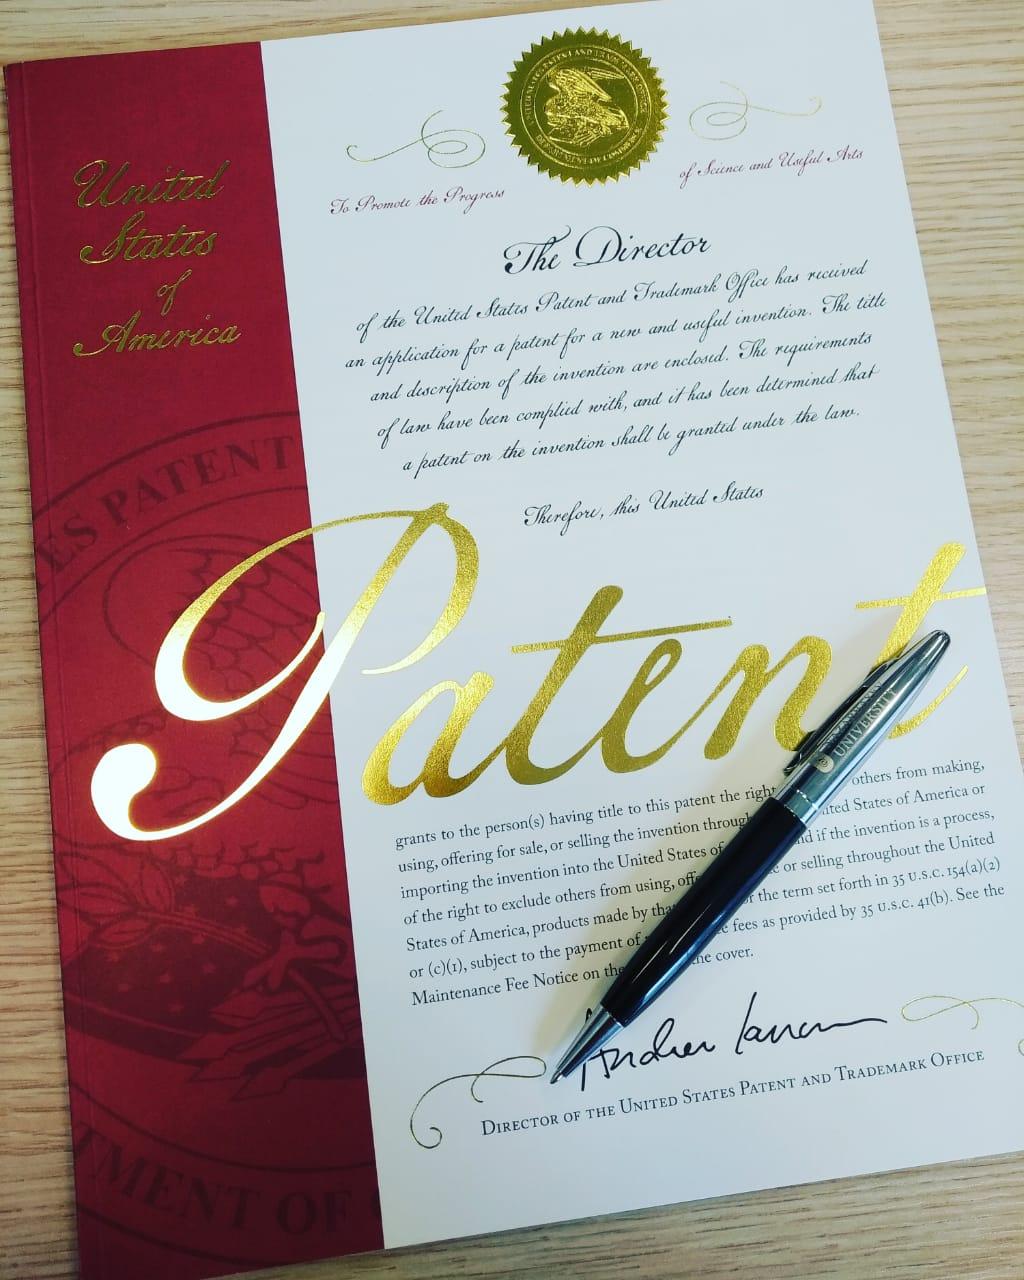 United
States
of
America
UNITED STATES PATENT AND TRADEMARK OFFICE
DEPARTMENT OF COMMERCE
To Promote the Progress
of Science and Useful Arts
The Director
of the United States Patent and Trademark Office has received
an application for a patent for a new and useful invention. The title
and description of the invention are enclosed. The requirements
of law have been complied with, and it has been determined that
a patent on the invention shall be granted under the law.
Therefore, this United States
ES PATENT
Patent
UNIVERSITY
grants to the person(s) having title to this patent the right others from making,
using, offering for sale, or selling the invention throug ited States of America or
importing the invention into the United States of d if the invention is a process,
of the right to exclude others from using, off or selling throughout the United
States of America, products made by tha the term set forth in 35 U.S.C. 154(a)(2)
or (c)(1), subject to the payment of fees as provided by 35 U.S.C. 41(b). See the
Maintenance Fee Notice on the he cover.
Andrei Iancu
DIRECTOR OF THE UNITED STATES PATENT AND TRADEMARK OFFICE
TMENT OF